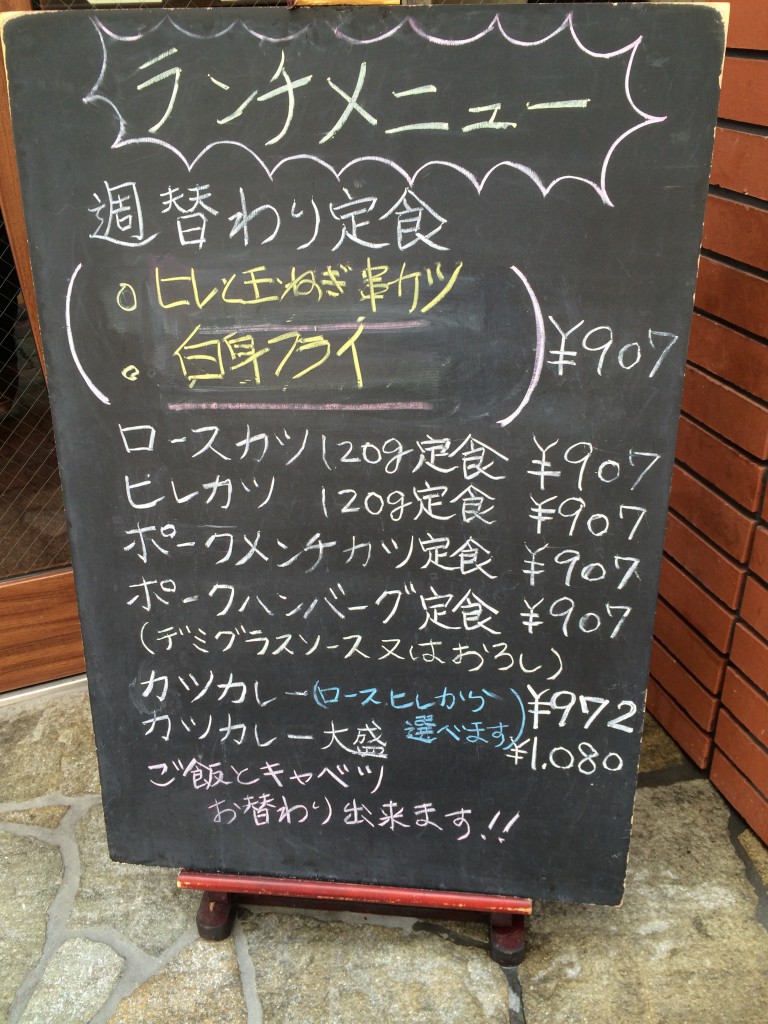 ランチメニュー
週替わり定食
○ ヒレと玉ねぎ串カツ
○ 白身フライ
¥907
ロースカツ120g定食 ¥907
ヒレカツ 120g定食 ¥907
ポークメンチカツ定食 ¥907
ポークハンバーグ定食 ¥907
(デミグラスソース又はおろし)
カツカレー(ロースヒレから ¥972
カツカレー大盛 選べます) ¥1.080
ご飯とキャベツ
お替わり出来ます!!